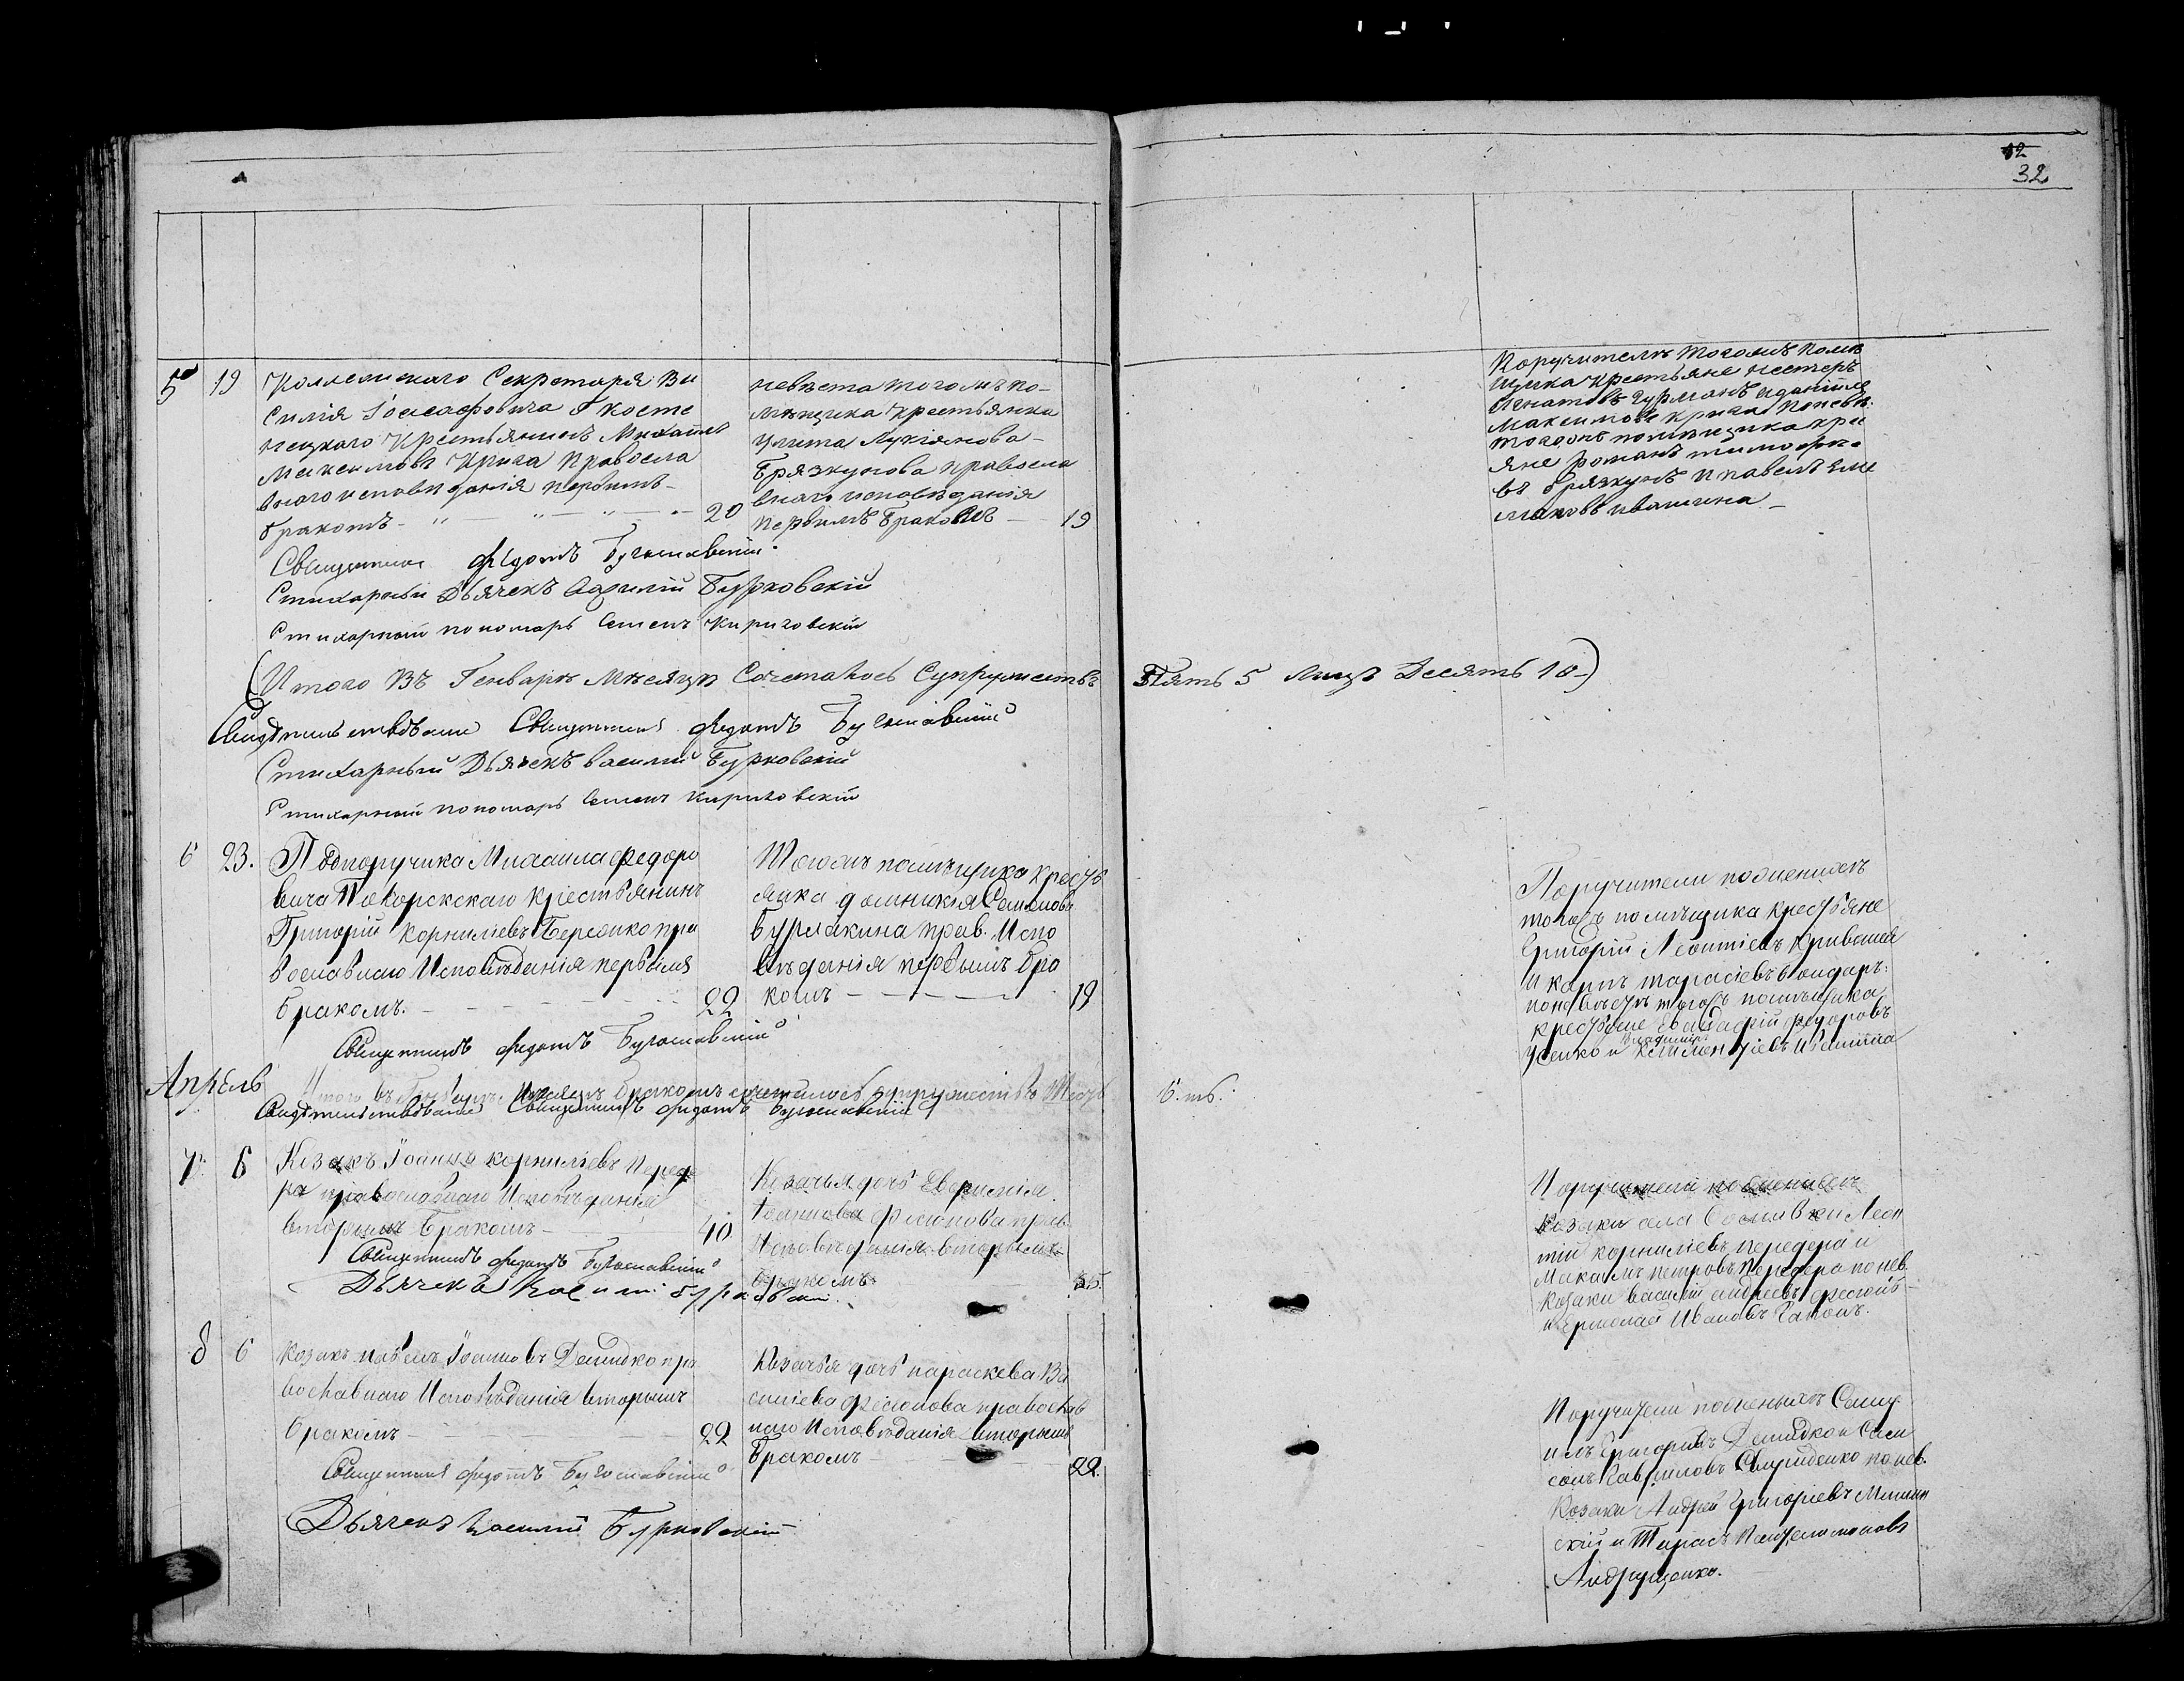 12
32
5 19 Коллежскаго Секретаря Ва
силія Іоасафовича
Крестьянинъ Михаилъ
Максимовъ Крига Правосла
внаго исповѣданія первымъ
бракомъ 20
невѣста тогожъ по-
мѣщика крестьянка
Улита Лукіянова
Брязкунова правосла
внаго исповѣданія
первымъ бракомъ 19
Поручители тогожъ помѣ
щика крестьяне Нестеръ
Игнатовъ
Максимовъ Крига Поневѣ.
тогожъ помѣщика кре
яне Романъ Тимофѣе
въ Брязкунъ и Павелъ
Священникъ Федотъ Бугославскій
Стихарный Дьячекъ Василій Бурковскій
Стихарный пономарь Семенъ Кириловскій
(Итого Въ Генварѣ Мѣсяцѣ Сочеталось Супружествъ Пять 5 Лицъ Десять 10)
Свидѣтельствовали Священникъ Федотъ Бугославскій
Стихарный Дьячекъ Василій Бурковскій
Стихарный пономарь Семенъ Кириловскій
6 23. Подпоручика Михаила Федоро
вича Покорскаго крестьянинъ
Григорій Корниліевъ пра
вославнаго Исповѣданія первымъ
бракомъ. 22
Тогожъ помѣщика крестъ
янка Домникія Семенова
Бурлакина прав. Испо
вѣданія первымъ бра
комъ 19
Поручители по
тогожъ помѣщика крестьяне
Григорій Леонтіевъ
и Карпъ Тарасіевъ Бондарь:
по невѣстѣ тогожъ помѣщика
крестьяне Федоровъ
Усенко и
Священникъ Федотъ Бугославскій
Апрѣль
Итого въ Мѣсяцѣ бракомъ сочеталось супружествъ Шесть 6.
Свидѣтельствовали Священникъ Федотъ Бугославскій
7. 6 Козакъ Іоаннъ Корниліевъ Переде
ра православнаго Исповѣданія
вторымъ бракомъ 40
Козачья дочь Евфимія
Іоаннова Фесюнова прав.
Исповѣданія вторымъ
бракомъ 35.
Поручители по женихѣ
Козаки села Леон
тій Корниліевъ Передера и
Максимъ Петровъ Передера по нев.
Козаки Василій Андреевъ Фесюнъ
и Ермолай Ивановъ
Священникъ Федотъ Бугославскій
Дьячекъ Василій Бурковскій
8 6 Козакъ Павелъ Іоанновъ Демидко пра
вославнаго Исповѣданія вторымъ
бракомъ 22
Козачья дочь Параскева Ва
силіева Фесюнова православ
наго Исповѣданія вторымъ
бракомъ 22.
Поручители по женихѣ
Григоріевъ Демидко и
Гавриловъ Свириденко по нев.
Козаки Андрей Григоріевъ
скій и Тарасъ Пантелимоновъ
Андрущенко.
Священникъ Федотъ Бугославскій
Дьячекъ Василій Бурковскій